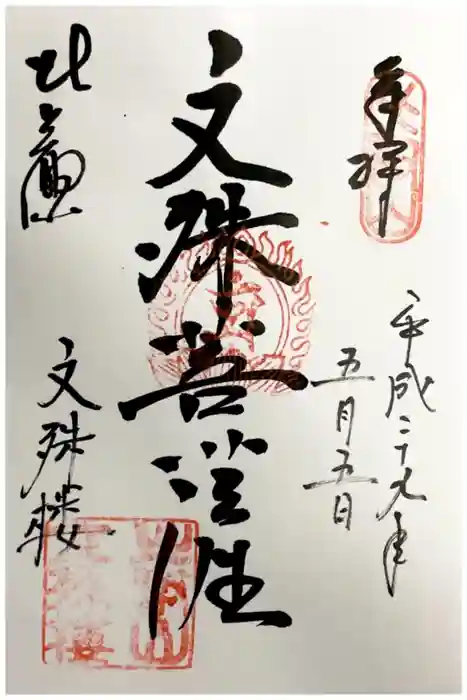 奉拝
平成二十九年
五月五日
文殊菩薩
比叡山
文殊楼